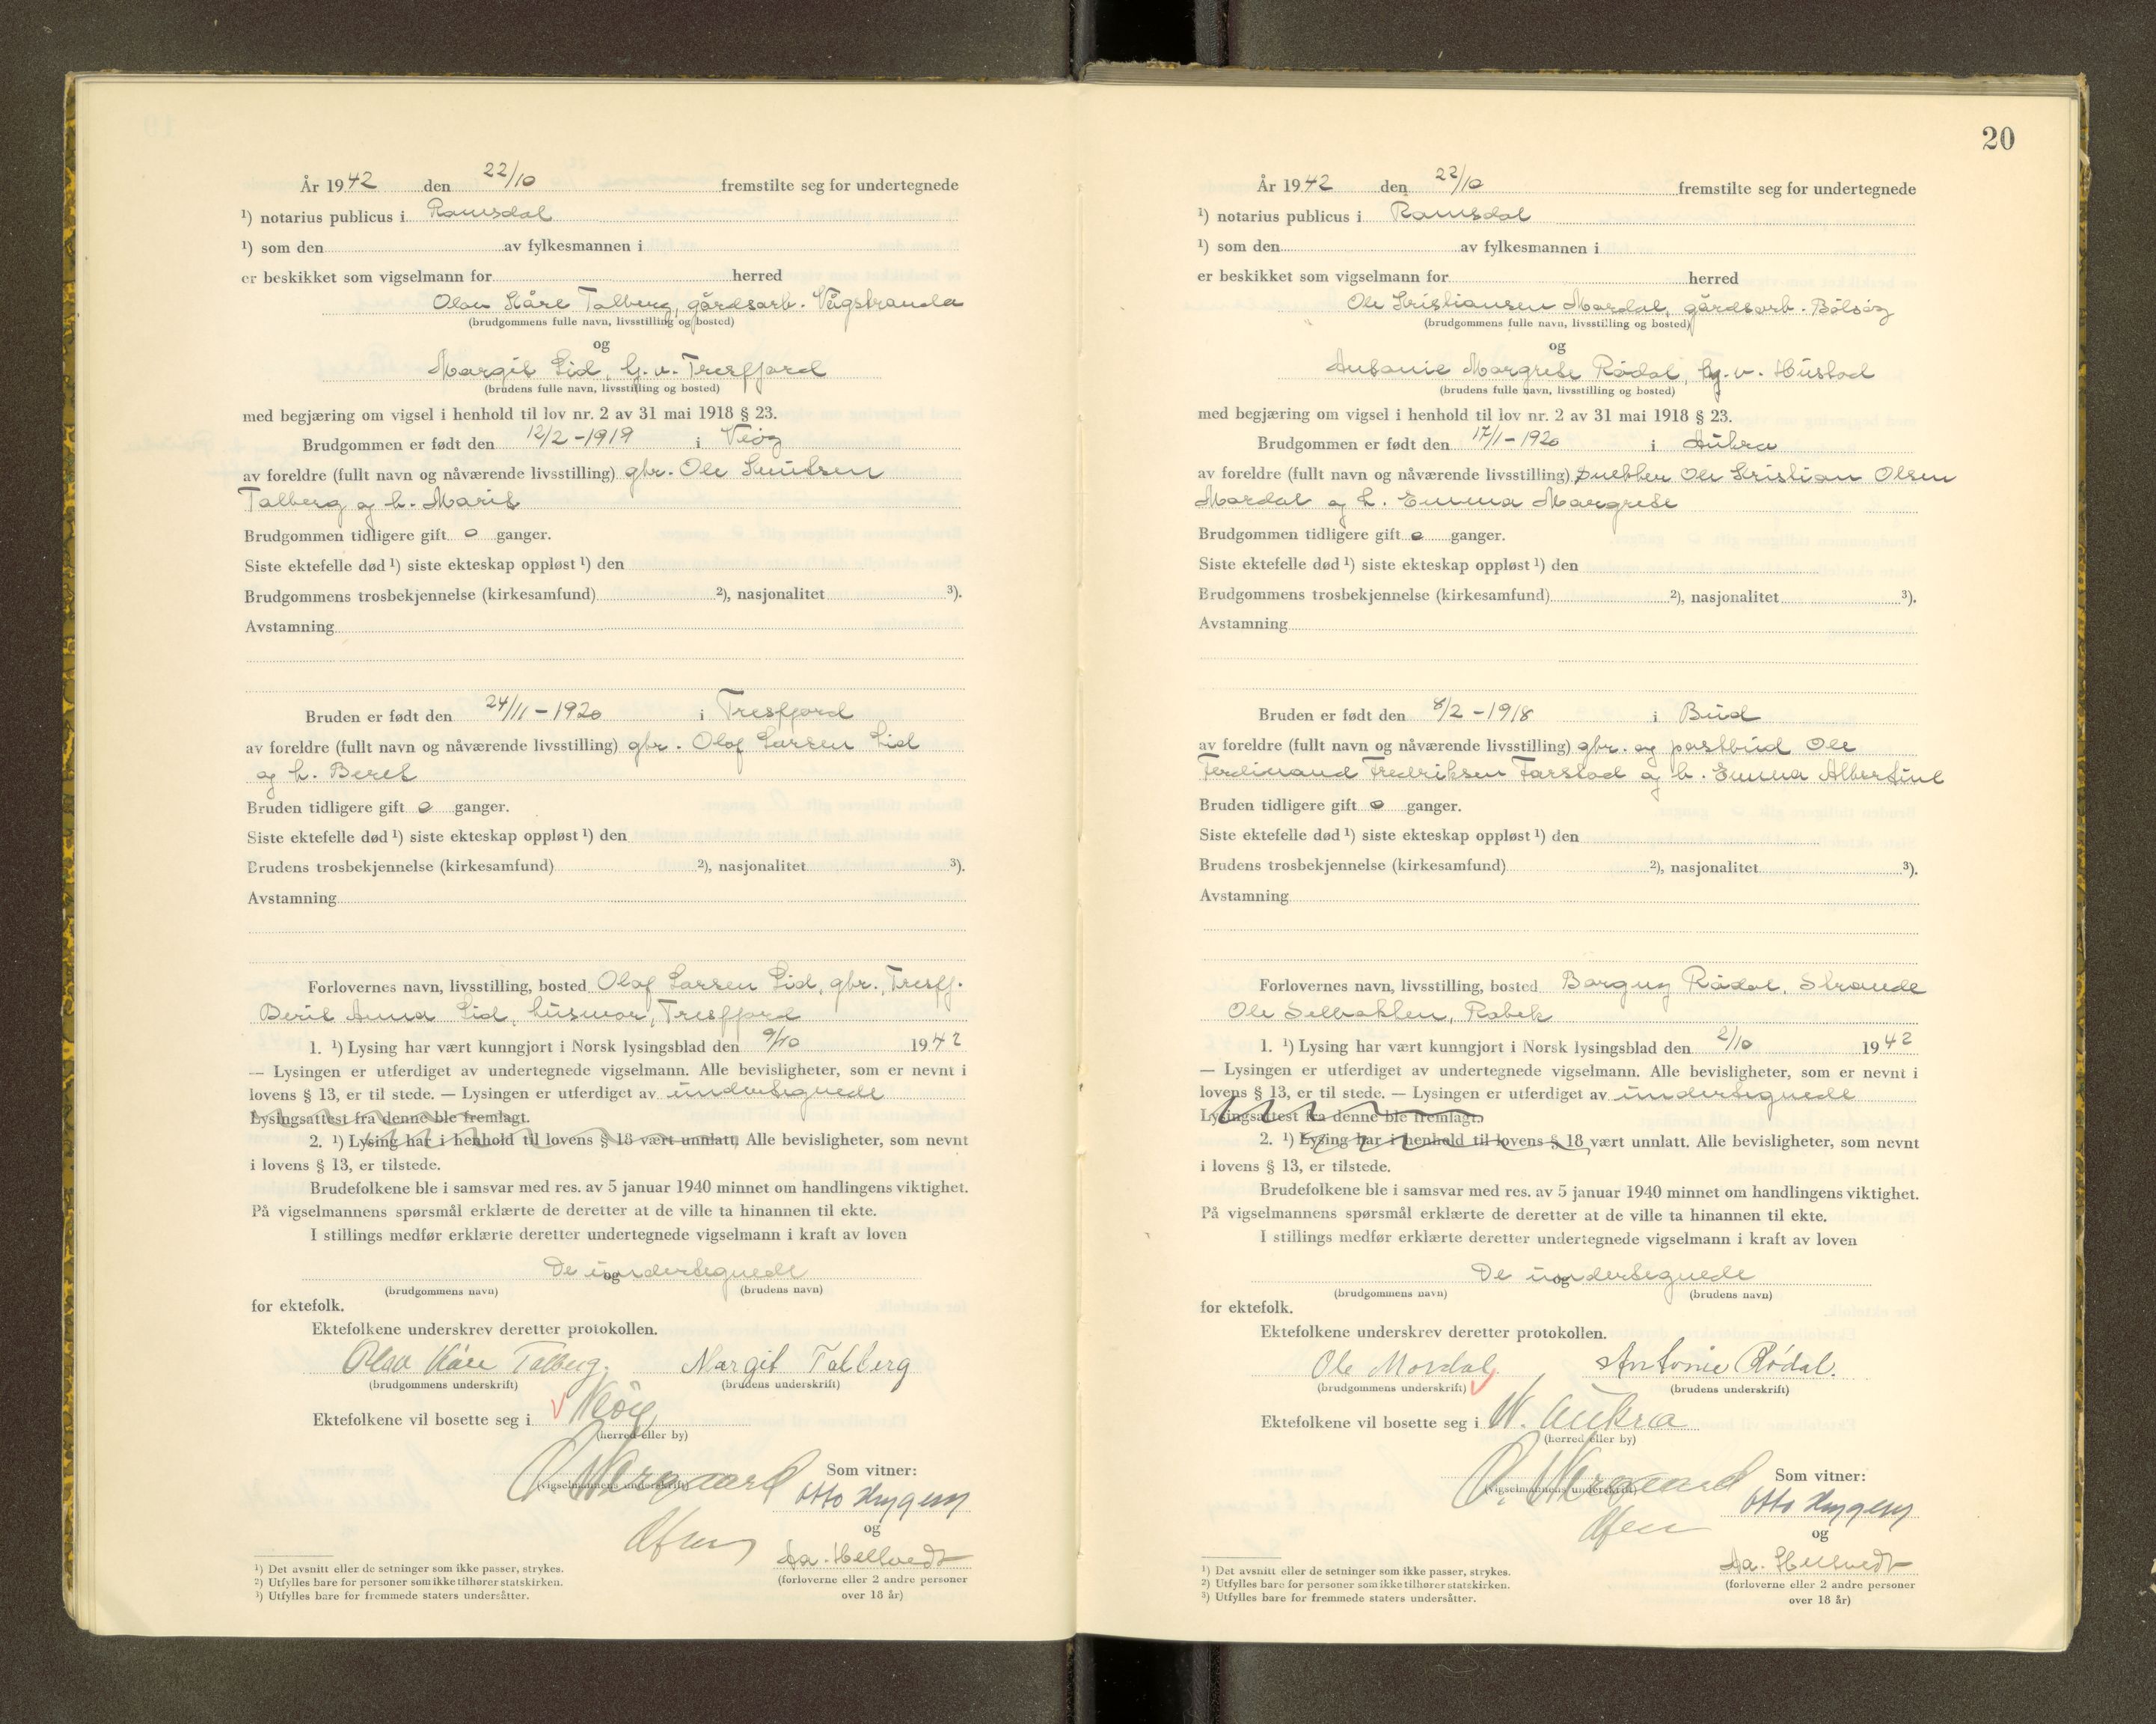 År 1942 den 22/10 fremstilte seg for undertegnede
¹) notarius publicus i Romsdal
¹) som den av fylkesmannen i
er beskikket som vigselmann for herred
Olav Kåre Talberg, gårdsarb. Vågstranda
(brudgommens fulle navn, livsstilling og bosted)
og
Margit Lid, hj.v. Tresfjord
(brudens fulle navn, livsstilling og bosted)
med begjæring om vigsel i henhold til lov nr. 2 av 31 mai 1918 § 23.
Brudgommen er født den 12/2-1919 i Veøy
av foreldre (fullt navn og nåværende livsstilling) gbr. Ole Knutsen
Talberg og h. Marit
Brudgommen tidligere gift 0 ganger.
Siste ektefelle død ¹) siste ekteskap oppløst ¹) den
Brudgommens trosbekjennelse (kirkesamfund) ²), nasjonalitet ³).
Avstamning
Bruden er født den 24/11-1920 i Tresfjord
av foreldre (fullt navn og nåværende livsstilling) gbr. Olaf Larsen Lid
og h. Beret
Bruden tidligere gift 0 ganger.
Siste ektefelle død ¹) siste ekteskap oppløst ¹) den
Brudens trosbekjennelse (kirkesamfund) ²), nasjonalitet ³).
Avstamning
Forlovernes navn, livsstilling, bosted Olaf Larsen Lid, gbr., Tresfj.
Berit Anna Lid, husmor, Tresfjord
1. ¹) Lysing har vært kunngjort i Norsk lysingsblad den 9/10 1942
— Lysingen er utferdiget av undertegnede vigselmann. Alle bevisligheter, som er nevnt i
lovens § 13, er til stede. — Lysingen er utferdiget av undertegnede
Lysingsattest fra denne ble fremlagt.
2. ¹) Lysing har i henhold til lovens § 18 vært unnlatt. Alle bevisligheter, som nevnt
i lovens § 13, er tilstede.
Brudefolkene ble i samsvar med res. av 5 januar 1940 minnet om handlingens viktighet.
På vigselmannens spørsmål erklærte de deretter at de ville ta hinannen til ekte.
I stillings medfør erklærte deretter undertegnede vigselmann i kraft av loven
De undertegnede
og
(brudgommens navn) (brudens navn)
for ektefolk.
Ektefolkene underskrev deretter protokollen.
Olav Kåre Talberg. Margit Talberg
(brudgommens underskrift) (brudens underskrift)
Ektefolkene vil bosette seg i Veöy
(herred eller by)
Som vitner:
(vigselmannens underskrift)
Otto
og
Aa. Hellvedt
(forloverne eller 2 andre personer
over 18 år)
¹) Det avsnitt eller de setninger som ikke passer, strykes.
²) Utfylles bare for personer som ikke tilhører statskirken.
³) Utfylles bare for fremmede staters undersåtter.
20
År 1942 den 22/10 fremstilte seg for undertegnede
¹) notarius publicus i Romsdal
¹) som den av fylkesmannen i
er beskikket som vigselmann for herred
Ole Kristiansen Mordal, gårdsarb. Bolsøy
(brudgommens fulle navn, livsstilling og bosted)
og
Antonie Margrete Rødal, hj.v. Hustad
(brudens fulle navn, livsstilling og bosted)
med begjæring om vigsel i henhold til lov nr. 2 av 31 mai 1918 § 23.
Brudgommen er født den 17/1-1920 i Aukra
av foreldre (fullt navn og nåværende livsstilling) snekker Ole Kristian Olsen
Mordal og h. Emma Margrete
Brudgommen tidligere gift 0 ganger.
Siste ektefelle død ¹) siste ekteskap oppløst ¹) den
Brudgommens trosbekjennelse (kirkesamfund) ²), nasjonalitet ³).
Avstamning
Bruden er født den 8/2-1918 i Bud
av foreldre (fullt navn og nåværende livsstilling) gbr. og postbud Ole
Ferdinand Fredriksen Farstad og h. Emma Albertine
Bruden tidligere gift 0 ganger.
Siste ektefelle død ¹) siste ekteskap oppløst ¹) den
Brudens trosbekjennelse (kirkesamfund) ²), nasjonalitet ³).
Avstamning
Forlovernes navn, livsstilling, bosted Borgny Rødal, Strande
Ole Selbakken, Røbek
1. ¹) Lysing har vært kunngjort i Norsk lysingsblad den 2/10 1942
— Lysingen er utferdiget av undertegnede vigselmann. Alle bevisligheter, som er nevnt i
lovens § 13, er til stede. — Lysingen er utferdiget av undertegnede
Lysingsattest fra denne ble fremlagt.
2. ¹) Lysing har i henhold til lovens § 18 vært unnlatt. Alle bevisligheter, som nevnt
i lovens § 13, er tilstede.
Brudefolkene ble i samsvar med res. av 5 januar 1940 minnet om handlingens viktighet.
På vigselmannens spørsmål erklærte de deretter at de ville ta hinannen til ekte.
I stillings medfør erklærte deretter undertegnede vigselmann i kraft av loven
De undertegnede
og
(brudgommens navn) (brudens navn)
for ektefolk.
Ektefolkene underskrev deretter protokollen.
Ole Mordal. Antonie Rødal.
(brudgommens underskrift) (brudens underskrift)
Ektefolkene vil bosette seg i N. Aukra
(herred eller by)
Som vitner:
(vigselmannens underskrift)
Otto
og
Aa. Hellvedt
(forloverne eller 2 andre personer
over 18 år)
¹) Det avsnitt eller de setninger som ikke passer, strykes.
²) Utfylles bare for personer som ikke tilhører statskirken.
³) Utfylles bare for fremmede staters undersåtter.